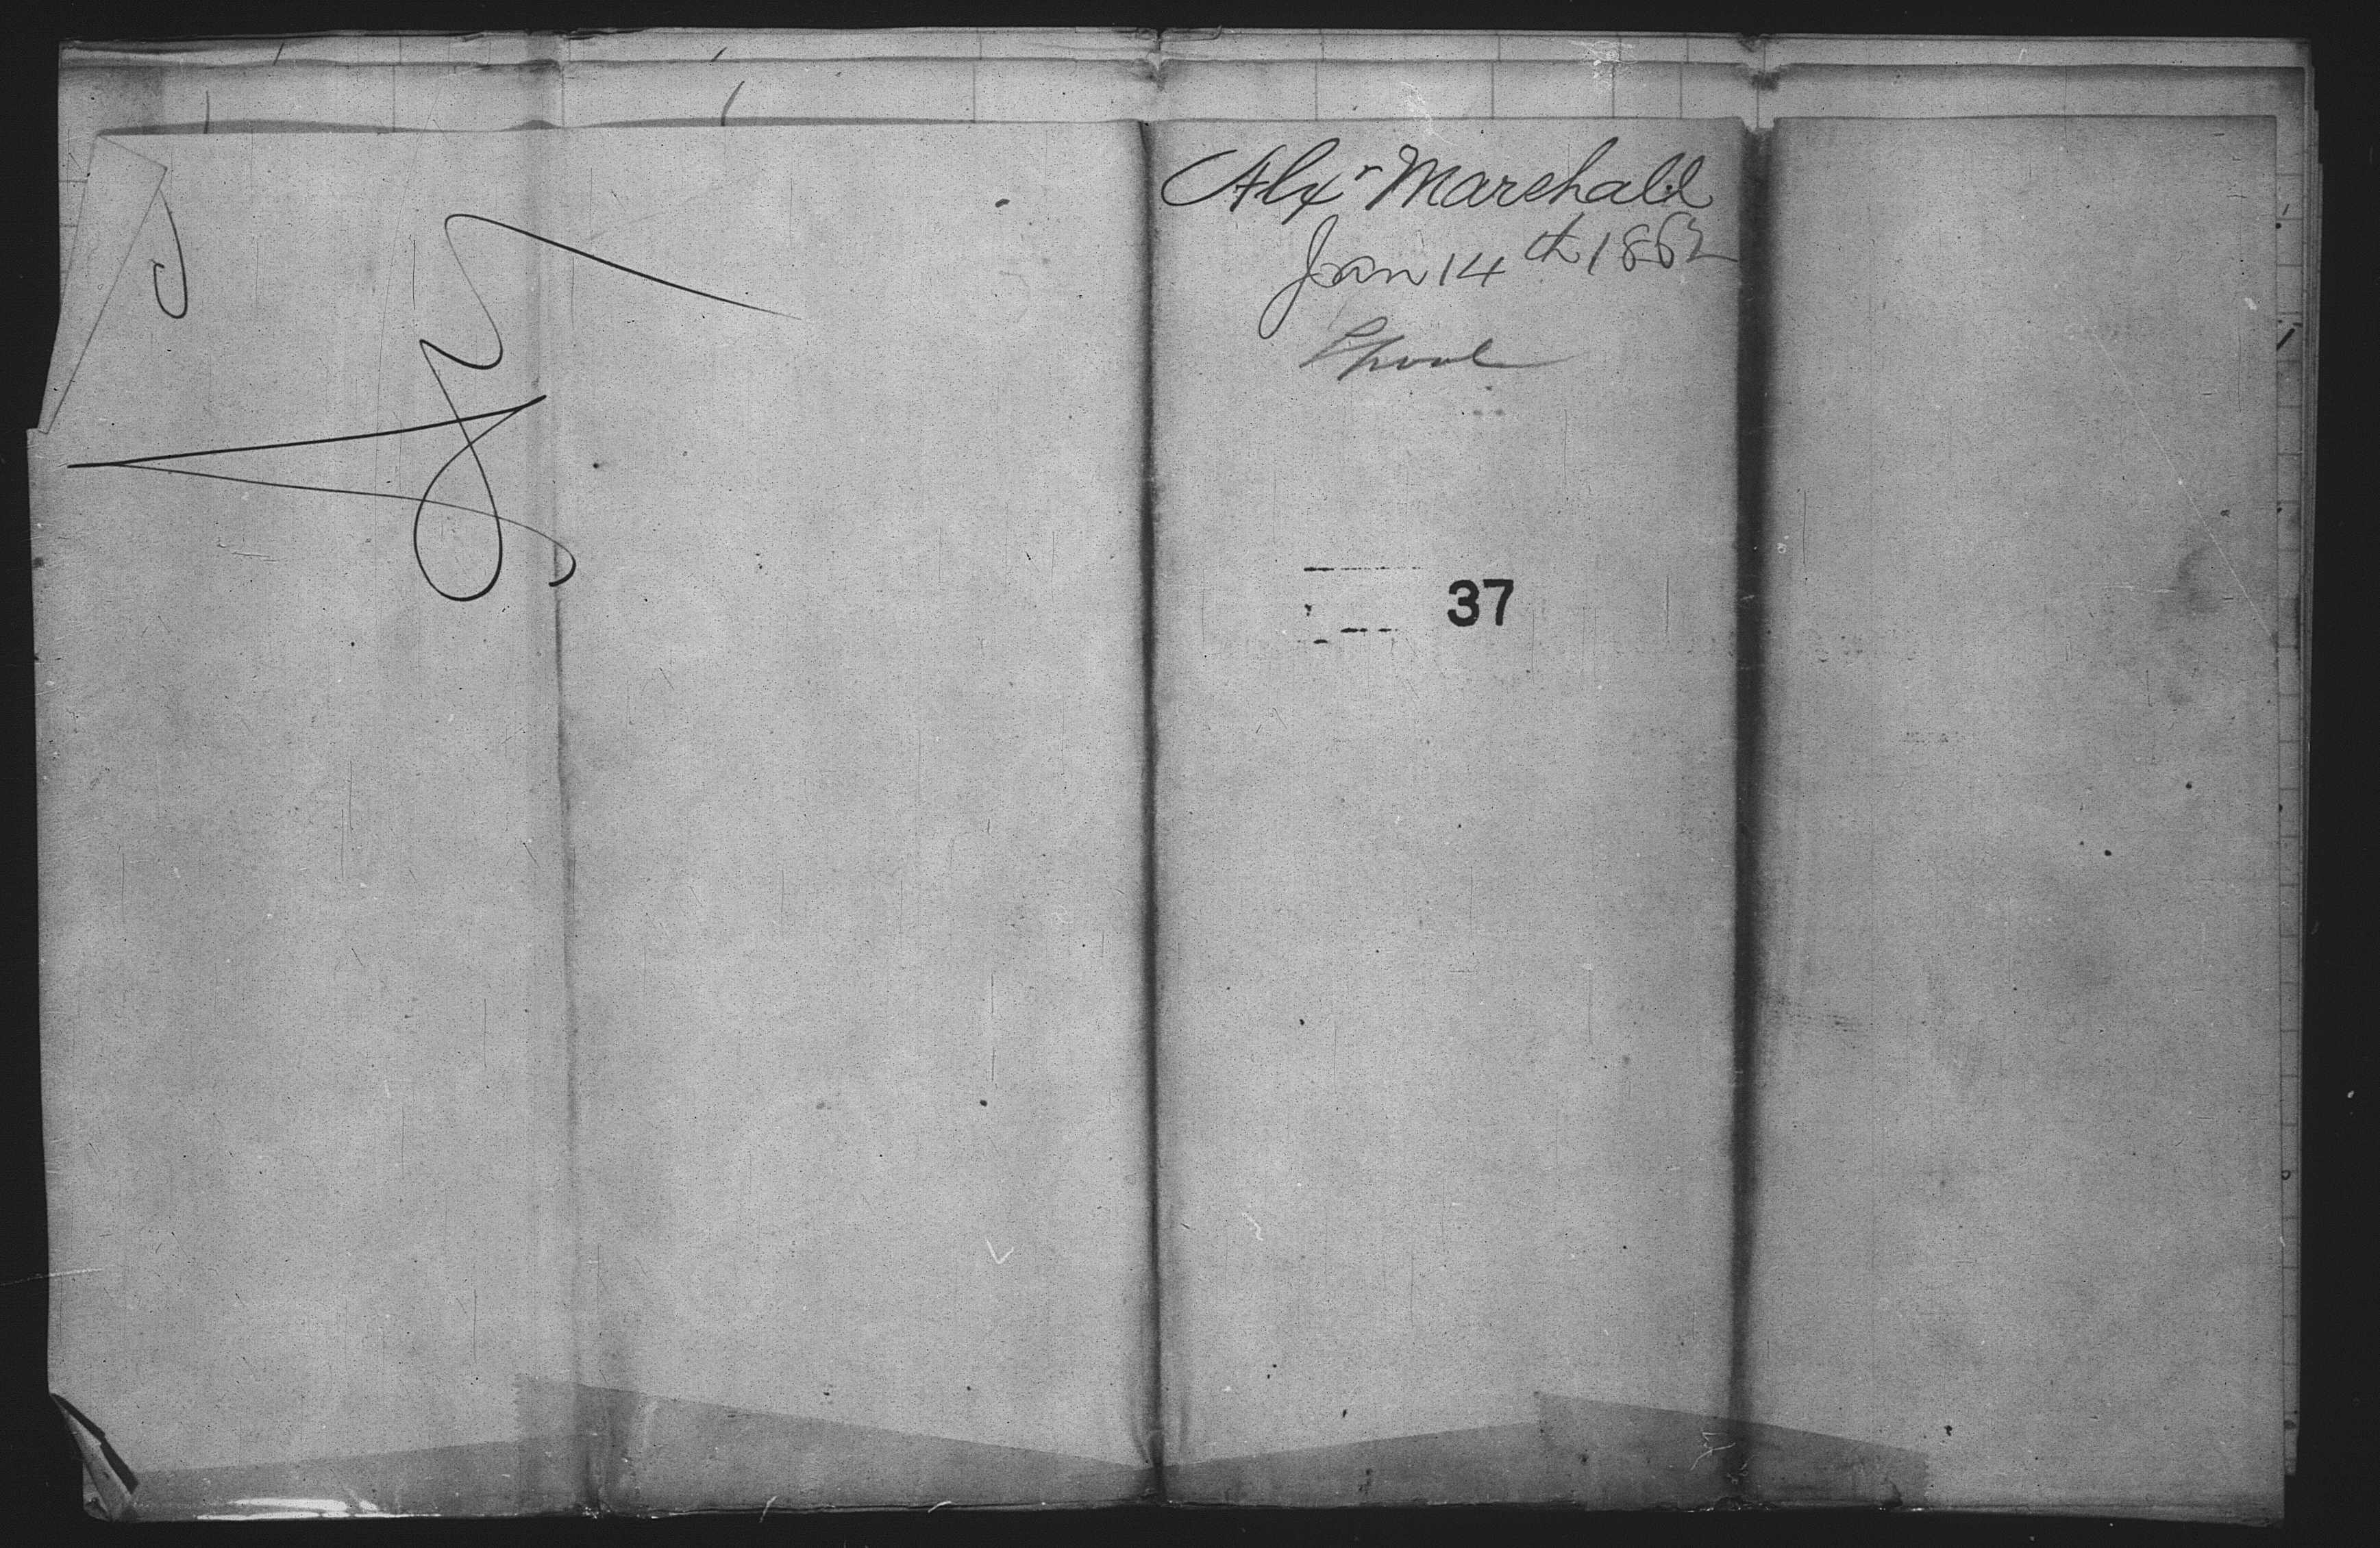 Alxr Marshall
Jan 14th 1862
37